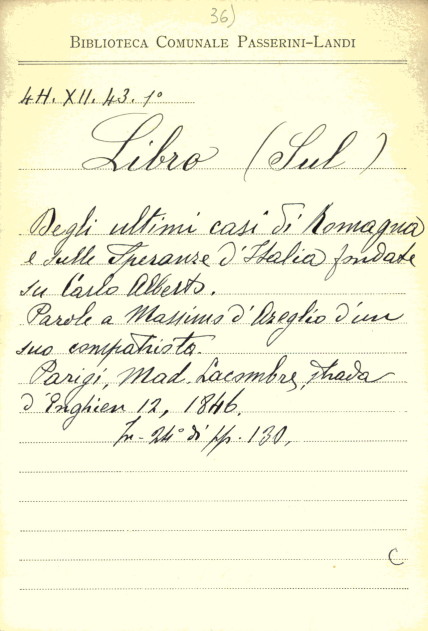 36)
BIBLIOTECA COMUNALE PASSERINI-LANDI
4H. XII. 43. 1º
Libro (Sul)
Degli ultimi casi di Romagna
e sulle Speranze d'Italia fondate
su Carlo Alberto.
Parole a Massimo d'Azeglio d'un
suo compatriota.
Parigi, Mad. Lacombre, strada
d'Enghien 12, 1846.
In-24º di pp. 130.
C